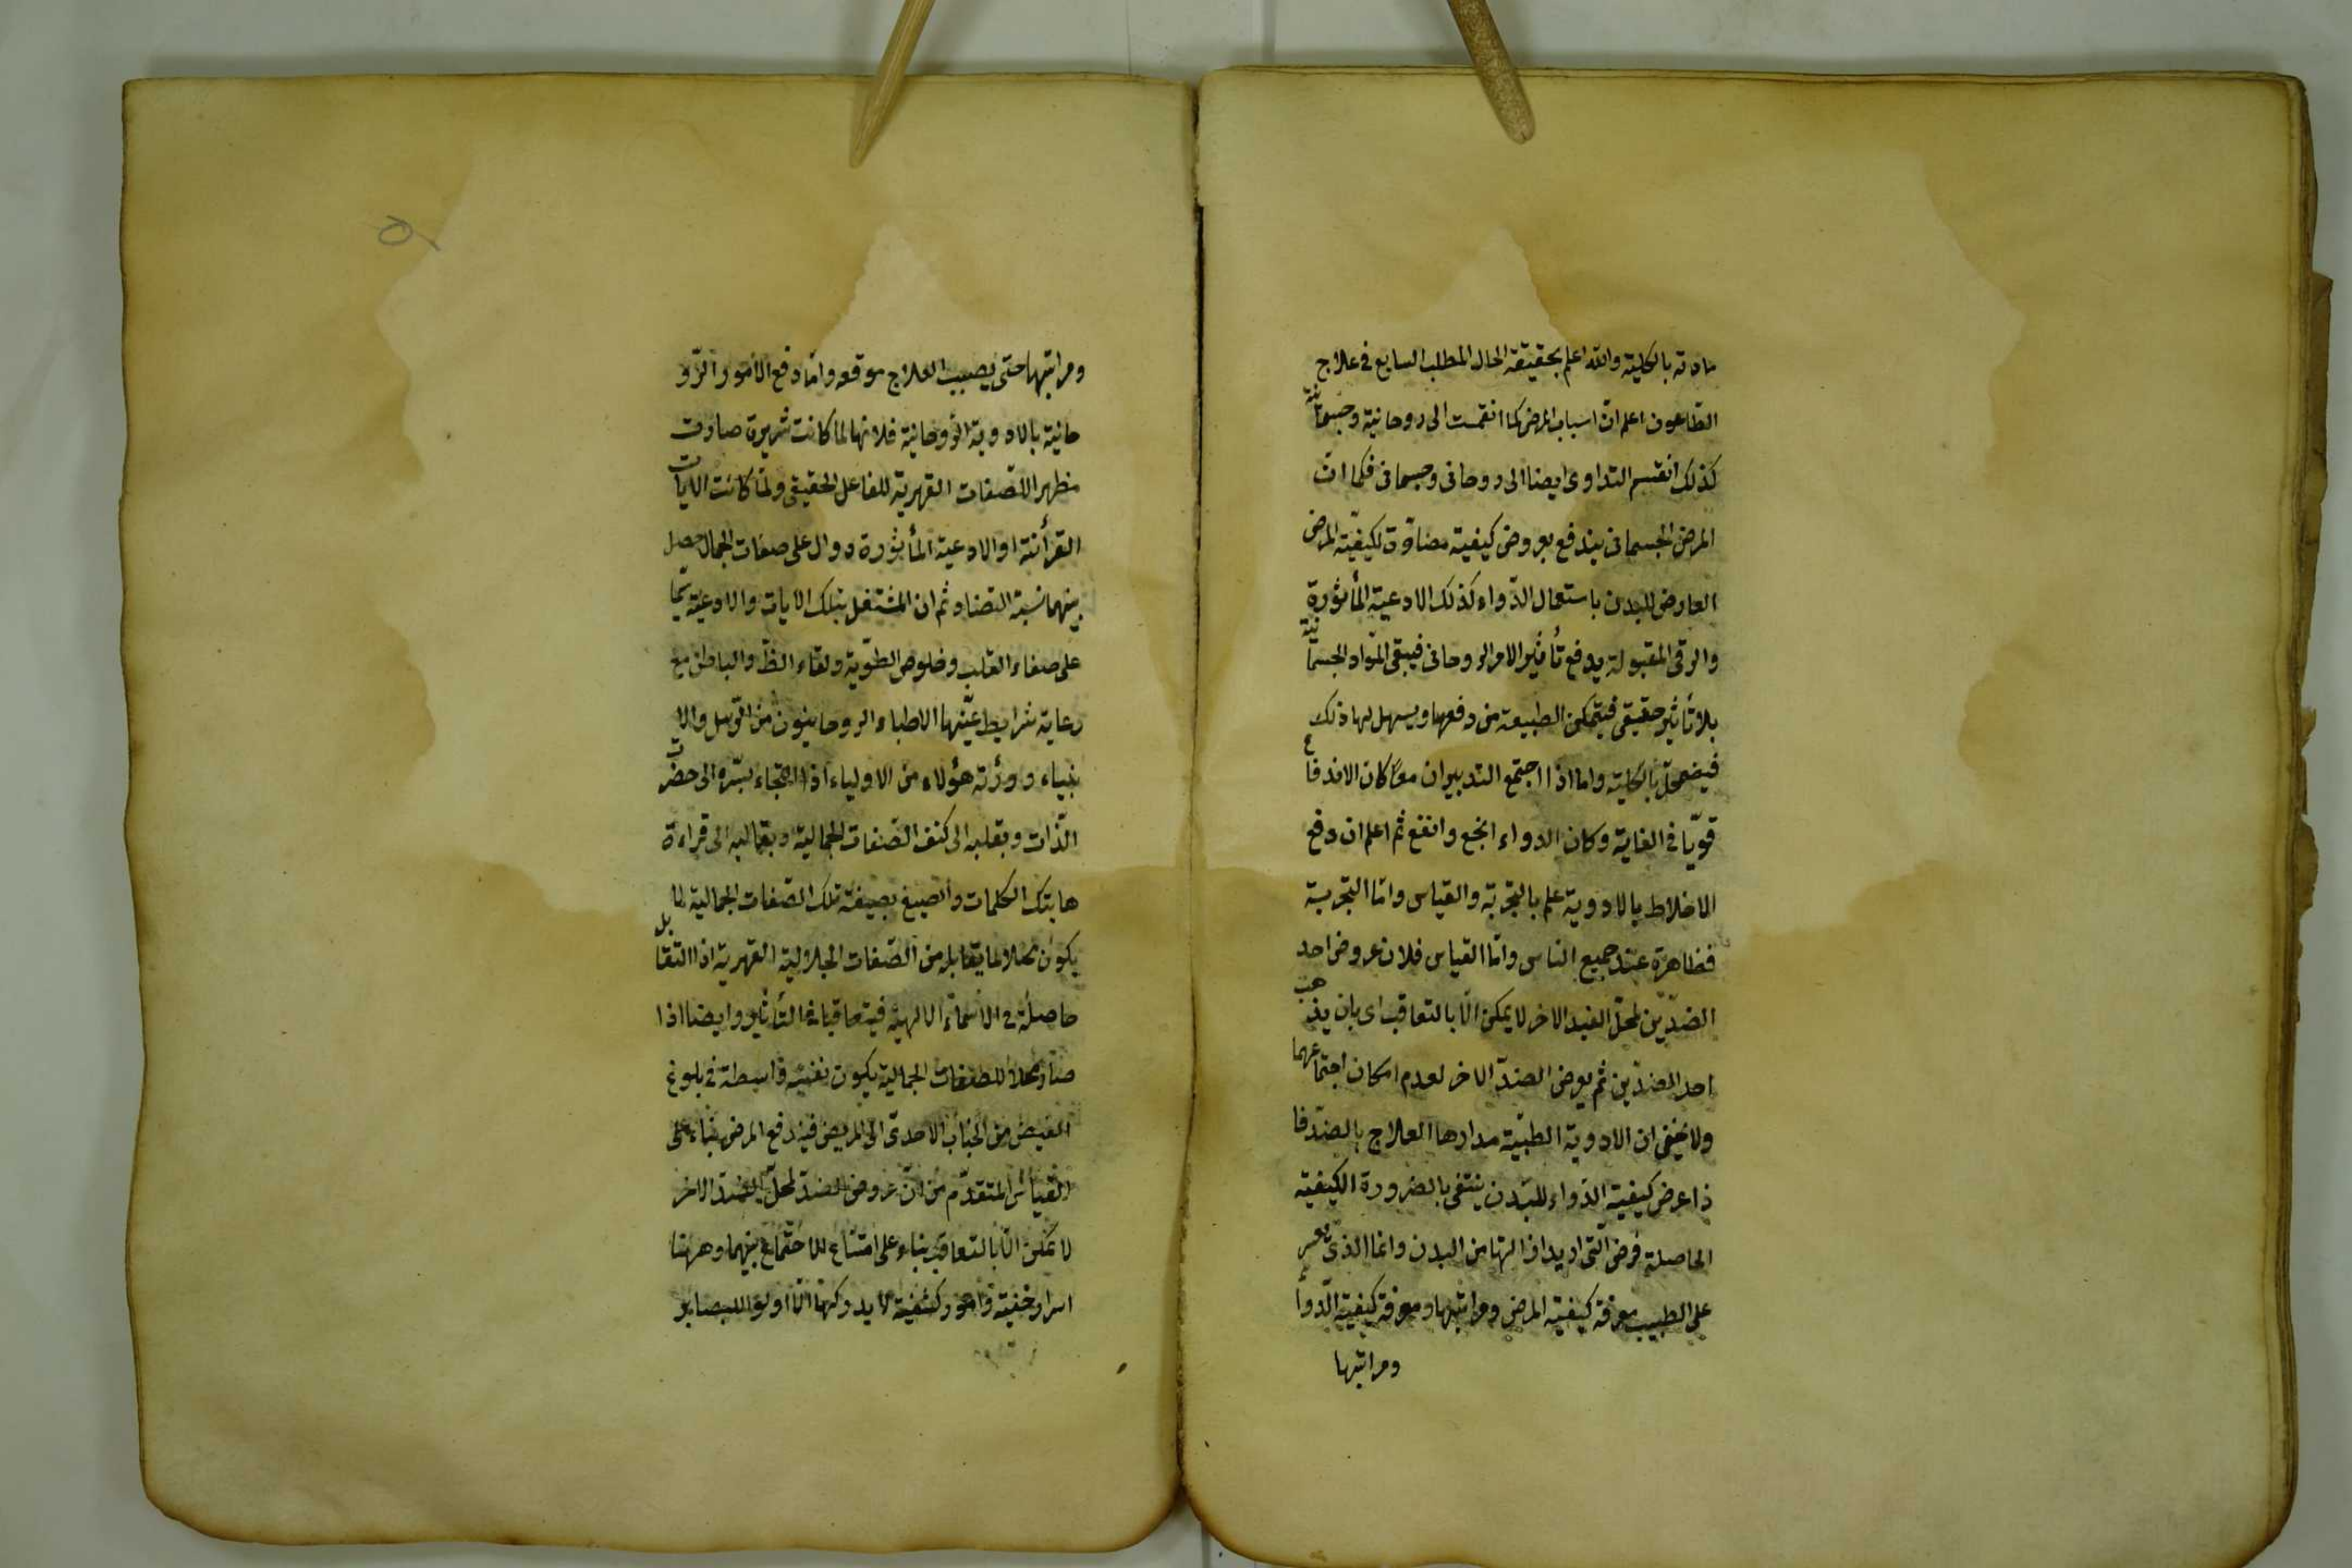 مادته بالكلية والله اعلم بحقيقة الحال المطلب السابع في علاج
الطاعون اعلم ان اسباب المرض كما انقسمت الى روحانية وجسمانية
كذلك انقسم التداوى ايضا الى روحانى وجسمانى فكما انّ
المرض الجسمانى يندفع بعروض كيفية مضادّة لكيفيّة المرض
العارض للبدن باستعمال الدّواء كذلك الادعية المأثورة
والرقى المقبولة يدفع تأثير الامر الروحانى فيبقى الموّاد الجسمانية
بلا تأثير حقيقى فيتمكن الطبيعة من دفعها ويسهل لها ذلك
فيضمحلّ بالكلية واما اذا اجتمع التدبيران معًا كان الاندفاع
قويّا في الغاية وكان الدواء انجع وانفع ثم اعلم ان دفع
الاخلاط بالادوية علم بالتجربة والقياس وامّا التجربة
فظاهرة عند جميع الناس وامّا القياس فلان عروض احد
الضدّين لمحلّ الضد الاخر لا يمكن الّا بالتعاقب اى بان يذهب
احد الضدّين ثم يعرض الضدّ الاخر لعدم امكان اجتماعهما
ولا يخفى ان الادوية الطبيّة مدارها العلاج بالضدّ فا
ذا عرض كيفية الدّواء للبدن ينتفى بالضرورة الكيفية
الحاصلة فرض التى اريد ازالتها من البدن وانما الذى يعسر
على الطبيب معرفة كيفية المرض ومراتبها ومعرفة كيفية الدّواء
ومراتبها
ومراتبها حتى يصيب العلاج موقعه وامّا دفع الامور الرّو
حانية بالادوية الرّوحانية فلانها لما كانت شريرة صارت
مظهرا للصّفات القهرية للفاعل الحقيقى ولمّا كانت الايات
القرأنية او الادعية المأثورة دوال على صفات الجمال حصل
بينهما نسبة التضاد ثم ان المشتغل بتلك الايات والادعية
على صفاء القلب وخلوص الطّوية ونقاء الظّ والباطن مع
رعاية شرايط عيّنها الاطباء الروحانيون من الرّسل والا
نبياء وورثة هؤلاء من الاولياء اذا التجاء بسّره الى حضرت
الذّات وبقلبه الى كنف الصّفات الجمالية وبقالبه الى قراءة
هاتيك الكلمات وانصبغ بصبغة تلك الصّفات الجمالية لما
يكون محلا لما يقابله من الصّفات الجلالية القهرية اذ التقابل
حاصلة في الاسماء الالهية فيتعاقبا في التأثير وايضا اذا
صار محلا للصفات الجمالية يكون نفسه واسطة في بلوغ
الفيض من الجناب الاحدىّ الى المريض فيه دفع المرض بناء على
القياس المتقدّم من انّ عروض الضدّ لمحلّ الضدّ الاخر
لا يمكن الّا بالتعاقب بناء على امتناع الاجتماع بينهما وههنا
اسرار خفية وامور كشفية لا يدركها الّا اولوا البصاير